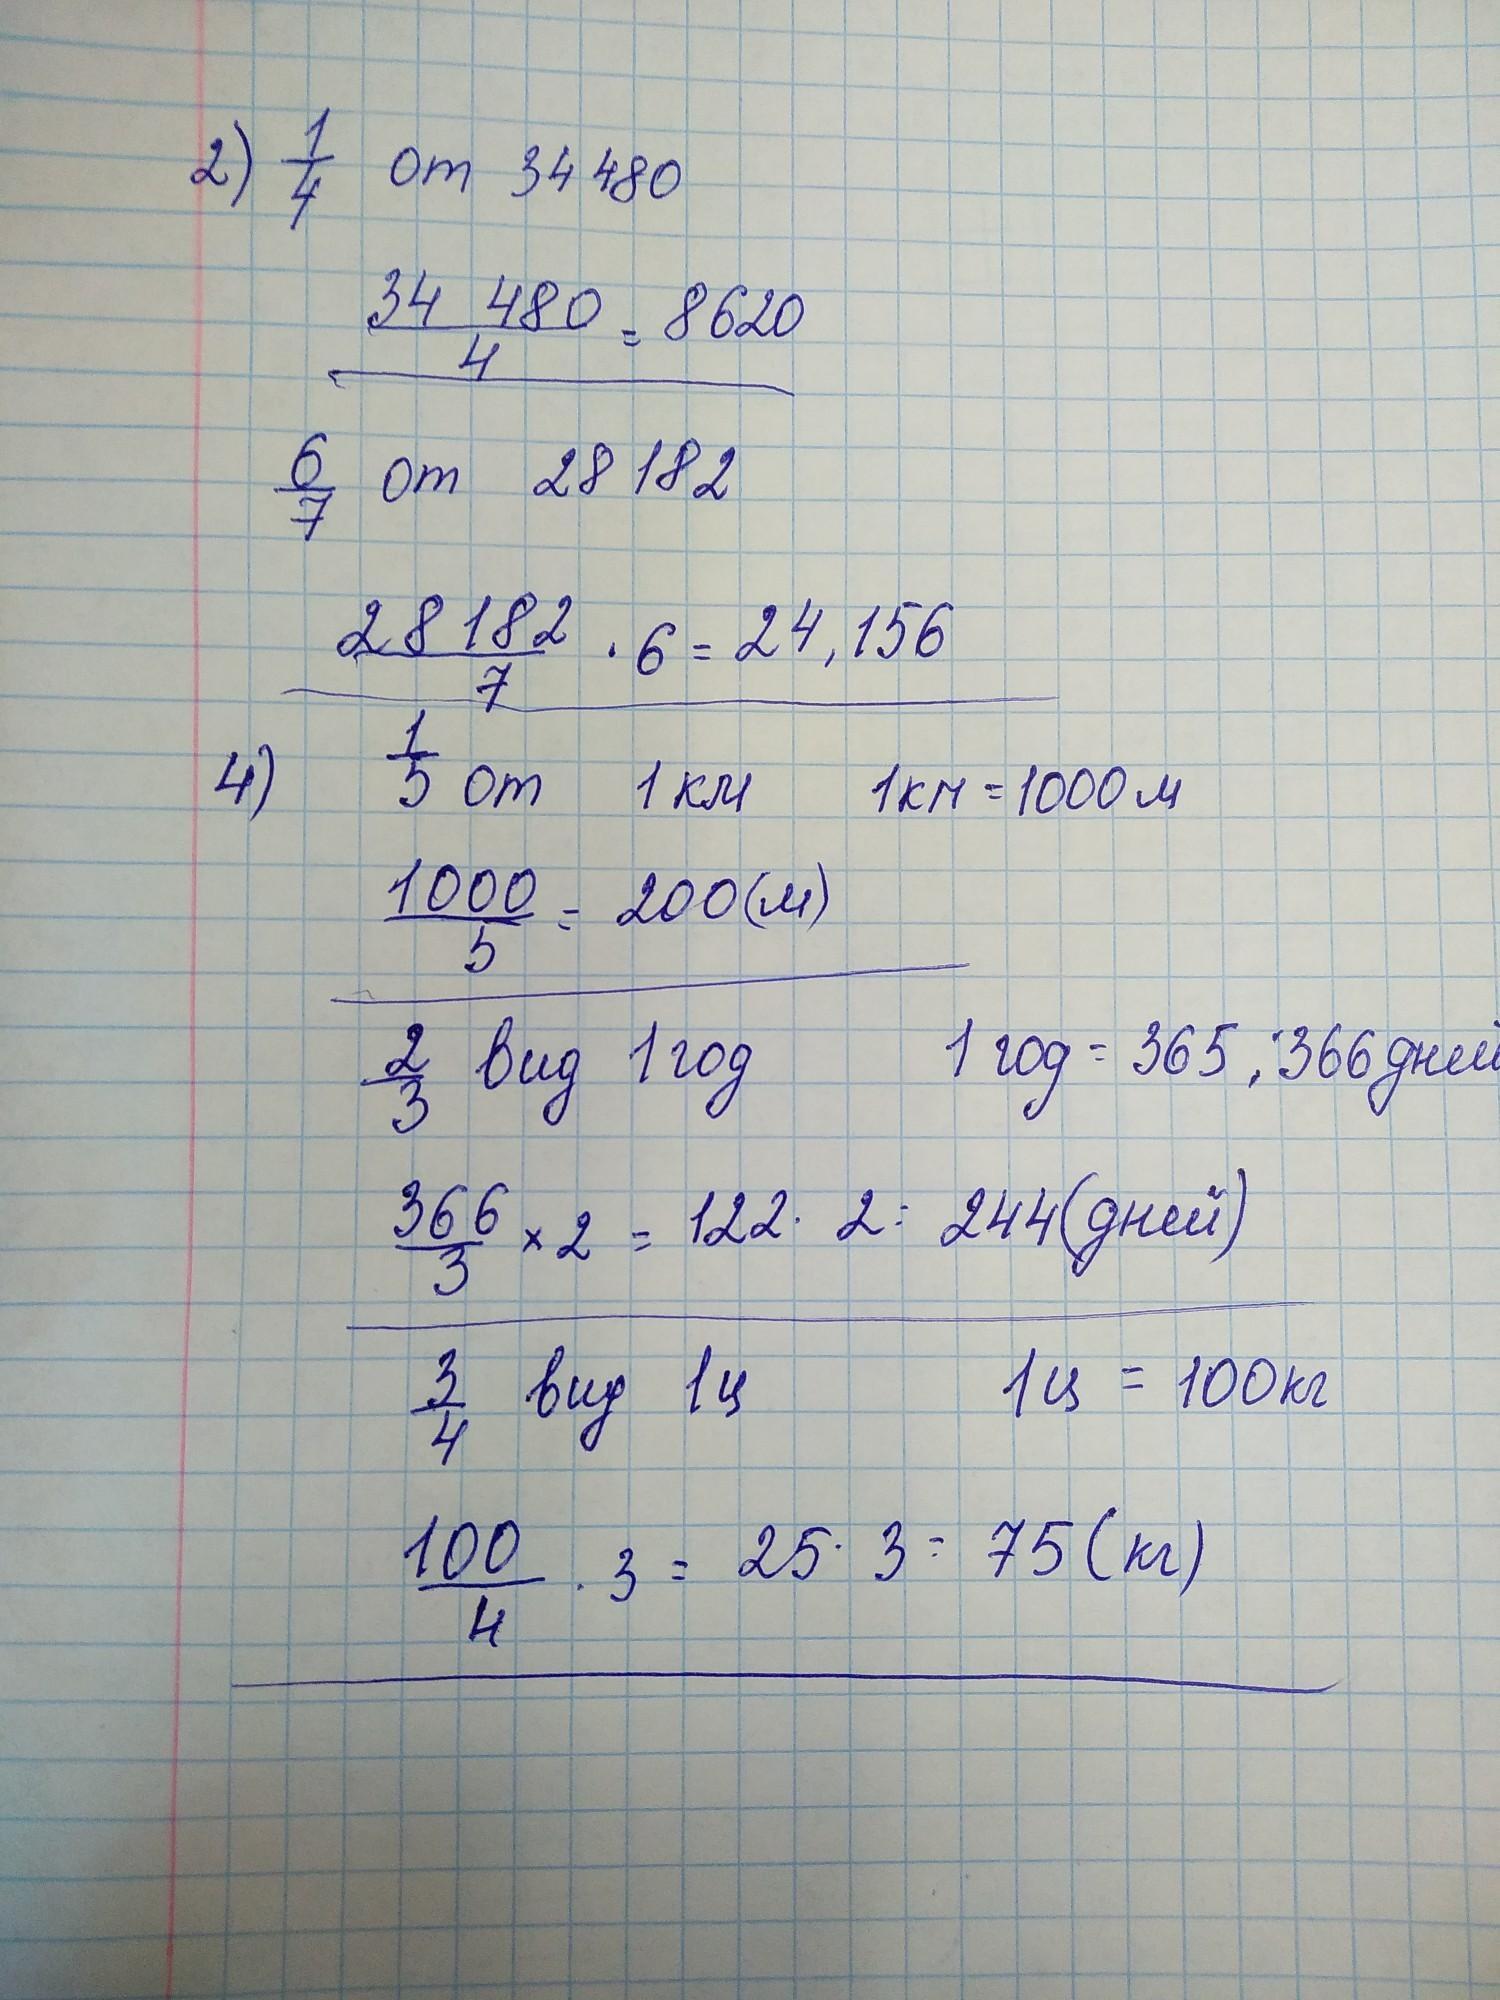 2) 1/4 от 34 480
34 480/4 = 8620
6/7 от 28 182
28 182/7 · 6 = 24,156
4) 1/5 от 1 км 1км = 1000 м
1000/5 = 200(м)
2/3 вид 1 год 1 год = 365, 366 дней
366/3 × 2 = 122 · 2 = 244(дней)
3/4 вид 1ц 1ц = 100кг
100/4 · 3 = 25 · 3 = 75(кг)